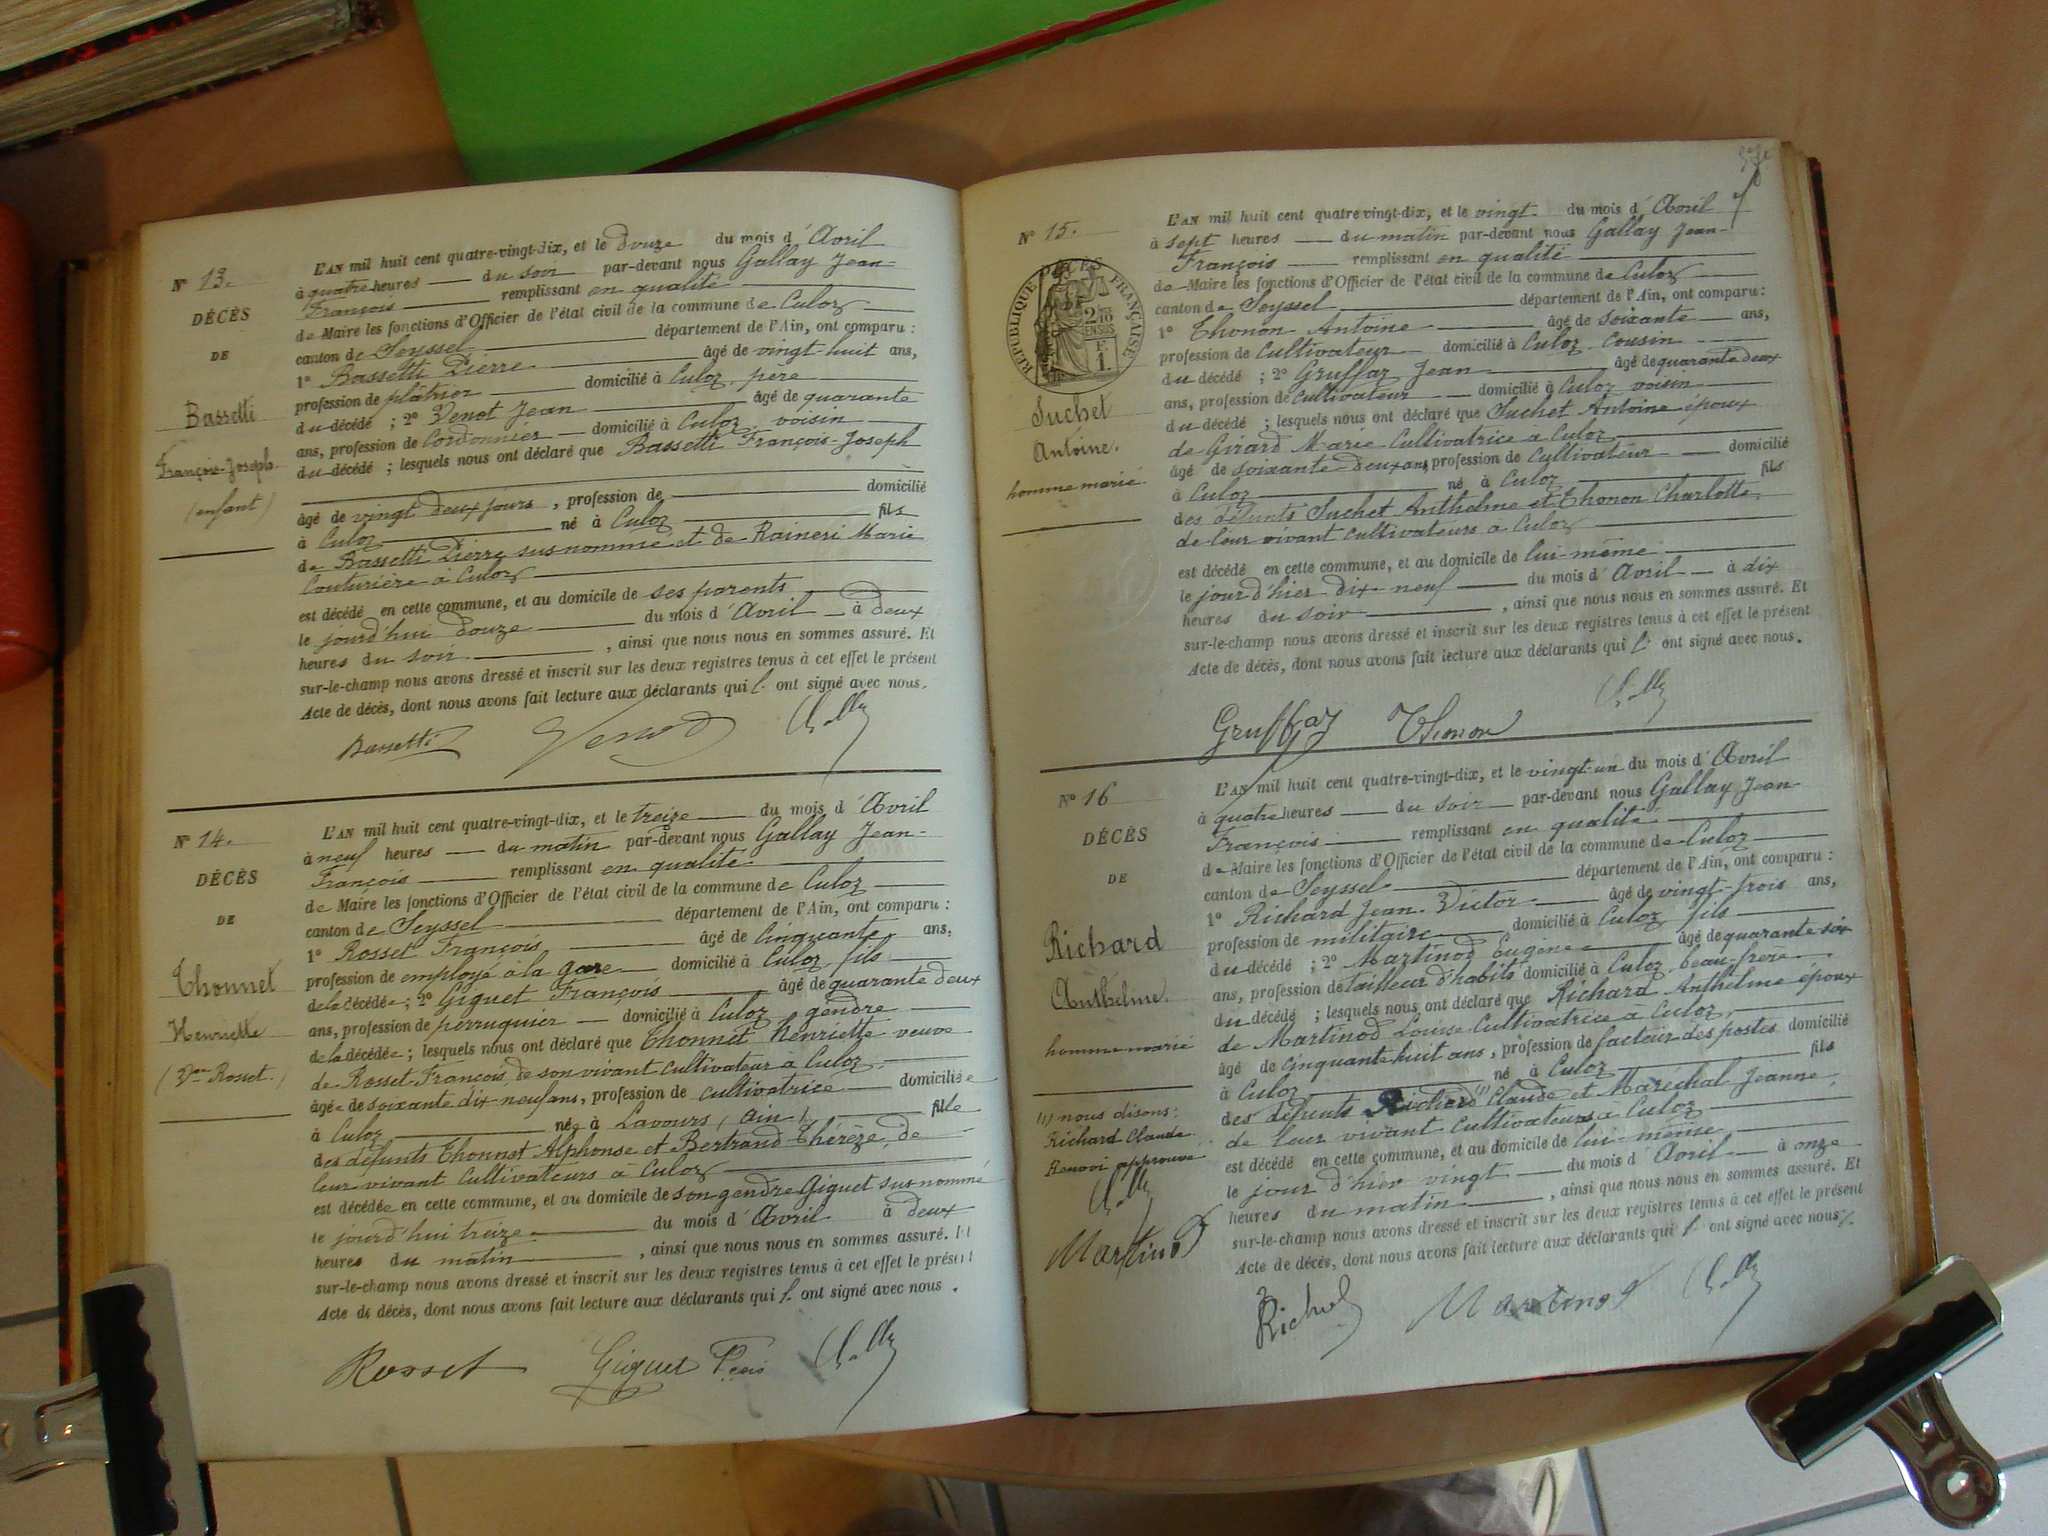 N° 13.
DÉCÈS
DE
Bassetti
François-Joseph
(enfant)
L'AN mil huit cent quatre-vingt-dix, et le douze du mois d'Avril
à quatre heures du soir par-devant nous Gallay Jean-
François remplissant en qualité
de Maire les fonctions d'Officier de l'état civil de la commune de Culoz
canton de Seyssel département de l'Ain, ont comparu :
1° Bassetti Pierre âgé de vingt-huit ans,
profession de plâtrier domicilié à Culoz, père
du décédé ; 2° Venot Jean âgé de quarante
ans, profession de Cordonnier domicilié à Culoz, voisin
du décédé ; lesquels nous ont déclaré que Bassetti François-Joseph
âgé de vingt deux jours, profession de domicilié
à Culoz né à Culoz fils
de Bassetti Pierre susnommé et de Raineri Marie
Couturière à Culoz
est décédé en cette commune, et au domicile de ses parents
le jourd'hui douze du mois d'Avril à deux
heures du soir, ainsi que nous nous en sommes assuré. Et
sur-le-champ nous avons dressé et inscrit sur les deux registres tenus à cet effet le présent
Acte de décès, dont nous avons fait lecture aux déclarants qui l' ont signé avec nous.
Bassetti Venot Gallay
N° 14.
DÉCÈS
DE
Thonnet
Henriette
(Vve Rosset.)
L'AN mil huit cent quatre-vingt-dix, et le treize du mois d'Avril
à neuf heures du matin par-devant nous Gallay Jean-
François remplissant en qualité
de Maire les fonctions d'Officier de l'état civil de la commune de Culoz
canton de Seyssel département de l'Ain, ont comparu :
1° Rosset François âgé de Cinquante ans,
profession de employé à la gare domicilié à Culoz, fils
de la décédée ; 2° Giguet François âgé de quarante deux
ans, profession de perruquier domicilié à Culoz, gendre
de la décédée ; lesquels nous ont déclaré que Thonnet Henriette veuve
de Rosset François, de son vivant cultivateur à Culoz,
âgée de soixante dix-neuf ans, profession de cultivatrice domiciliée
à Culoz née à Lavours (Ain) fille
des défunts Thonnet Alphonse et Bertrand Thérèze, de
leur vivant Cultivateurs à Culoz
est décédée en cette commune, et au domicile de son gendre Giguet susnommé
le jourd'hui treize du mois d'Avril à deux
heures du matin, ainsi que nous nous en sommes assuré. Et
sur-le-champ nous avons dressé et inscrit sur les deux registres tenus à cet effet le présent
Acte de décès, dont nous avons fait lecture aux déclarants qui l' ont signé avec nous.
Rosset Giguet Fçois Gallay
N° 15.
DÉCÈS
RÉPUBLIQUE FRANÇAISE
Suchet
Antoine.
homme marié.
L'AN mil huit cent quatre-vingt-dix, et le vingt du mois d'Avril
à sept heures du matin par-devant nous Gallay Jean-
François remplissant en qualité
de Maire les fonctions d'Officier de l'état civil de la commune de Culoz
canton de Seyssel département de l'Ain, ont comparu :
1° Thonon Antoine âgé de soixante ans,
profession de Cultivateur domicilié à Culoz Cousin
du décédé ; 2° Gruffaz Jean âgé de quarante deux
ans, profession de Cultivateur domicilié à Culoz voisin
du décédé ; lesquels nous ont déclaré que Suchet Antoine époux
de Girard Marie Cultivatrice à Culoz
âgé de soixante deux ans, profession de Cultivateur domicilié
à Culoz né à Culoz fils
des défunts Suchet Anthelme et Thonon Charlotte,
de leur vivant cultivateurs à Culoz
est décédé en cette commune, et au domicile de lui-même
le jour d'hier dix-neuf du mois d'Avril à dix
heures du soir, ainsi que nous nous en sommes assuré. Et
sur-le-champ nous avons dressé et inscrit sur les deux registres tenus à cet effet le présent
Acte de décès, dont nous avons fait lecture aux déclarants qui l' ont signé avec nous.
Gruffaz Thonon Gallay
N° 16
DÉCÈS
DE
Richard
Anthelme.
homme marié
(1) nous disons:
Richard Claude.
Renvoi approuvé
Gallay
Martinod
L'AN mil huit cent quatre-vingt-dix, et le vingt-un du mois d'Avril
à quatre heures du soir par-devant nous Gallay Jean-
François remplissant en qualité
de Maire les fonctions d'Officier de l'état civil de la commune de Culoz
canton de Seyssel département de l'Ain, ont comparu :
1° Richard Jean-Victor âgé de vingt-trois ans,
profession de militaire domicilié à Culoz, fils
du décédé ; 2° Martinod Eugène âgé de quarante six
ans, profession de tailleur d'habits domicilié à Culoz, beau-frère
du décédé ; lesquels nous ont déclaré que Richard Anthelme époux
de Martinod Louise Cultivatrice à Culoz,
âgé de Cinquante huit ans, profession de facteur des postes domicilié
à Culoz né à Culoz fils
des défunts Richard (1) Claude et Maréchal Jeanne,
de leur vivant Cultivateurs à Culoz
est décédé en cette commune, et au domicile de lui-même
le jour d'hier vingt du mois d'Avril à onze
heures du matin, ainsi que nous nous en sommes assuré. Et
sur-le-champ nous avons dressé et inscrit sur les deux registres tenus à cet effet le présent
Acte de décès, dont nous avons fait lecture aux déclarants qui l' ont signé avec nous.
Richard Martinod Gallay